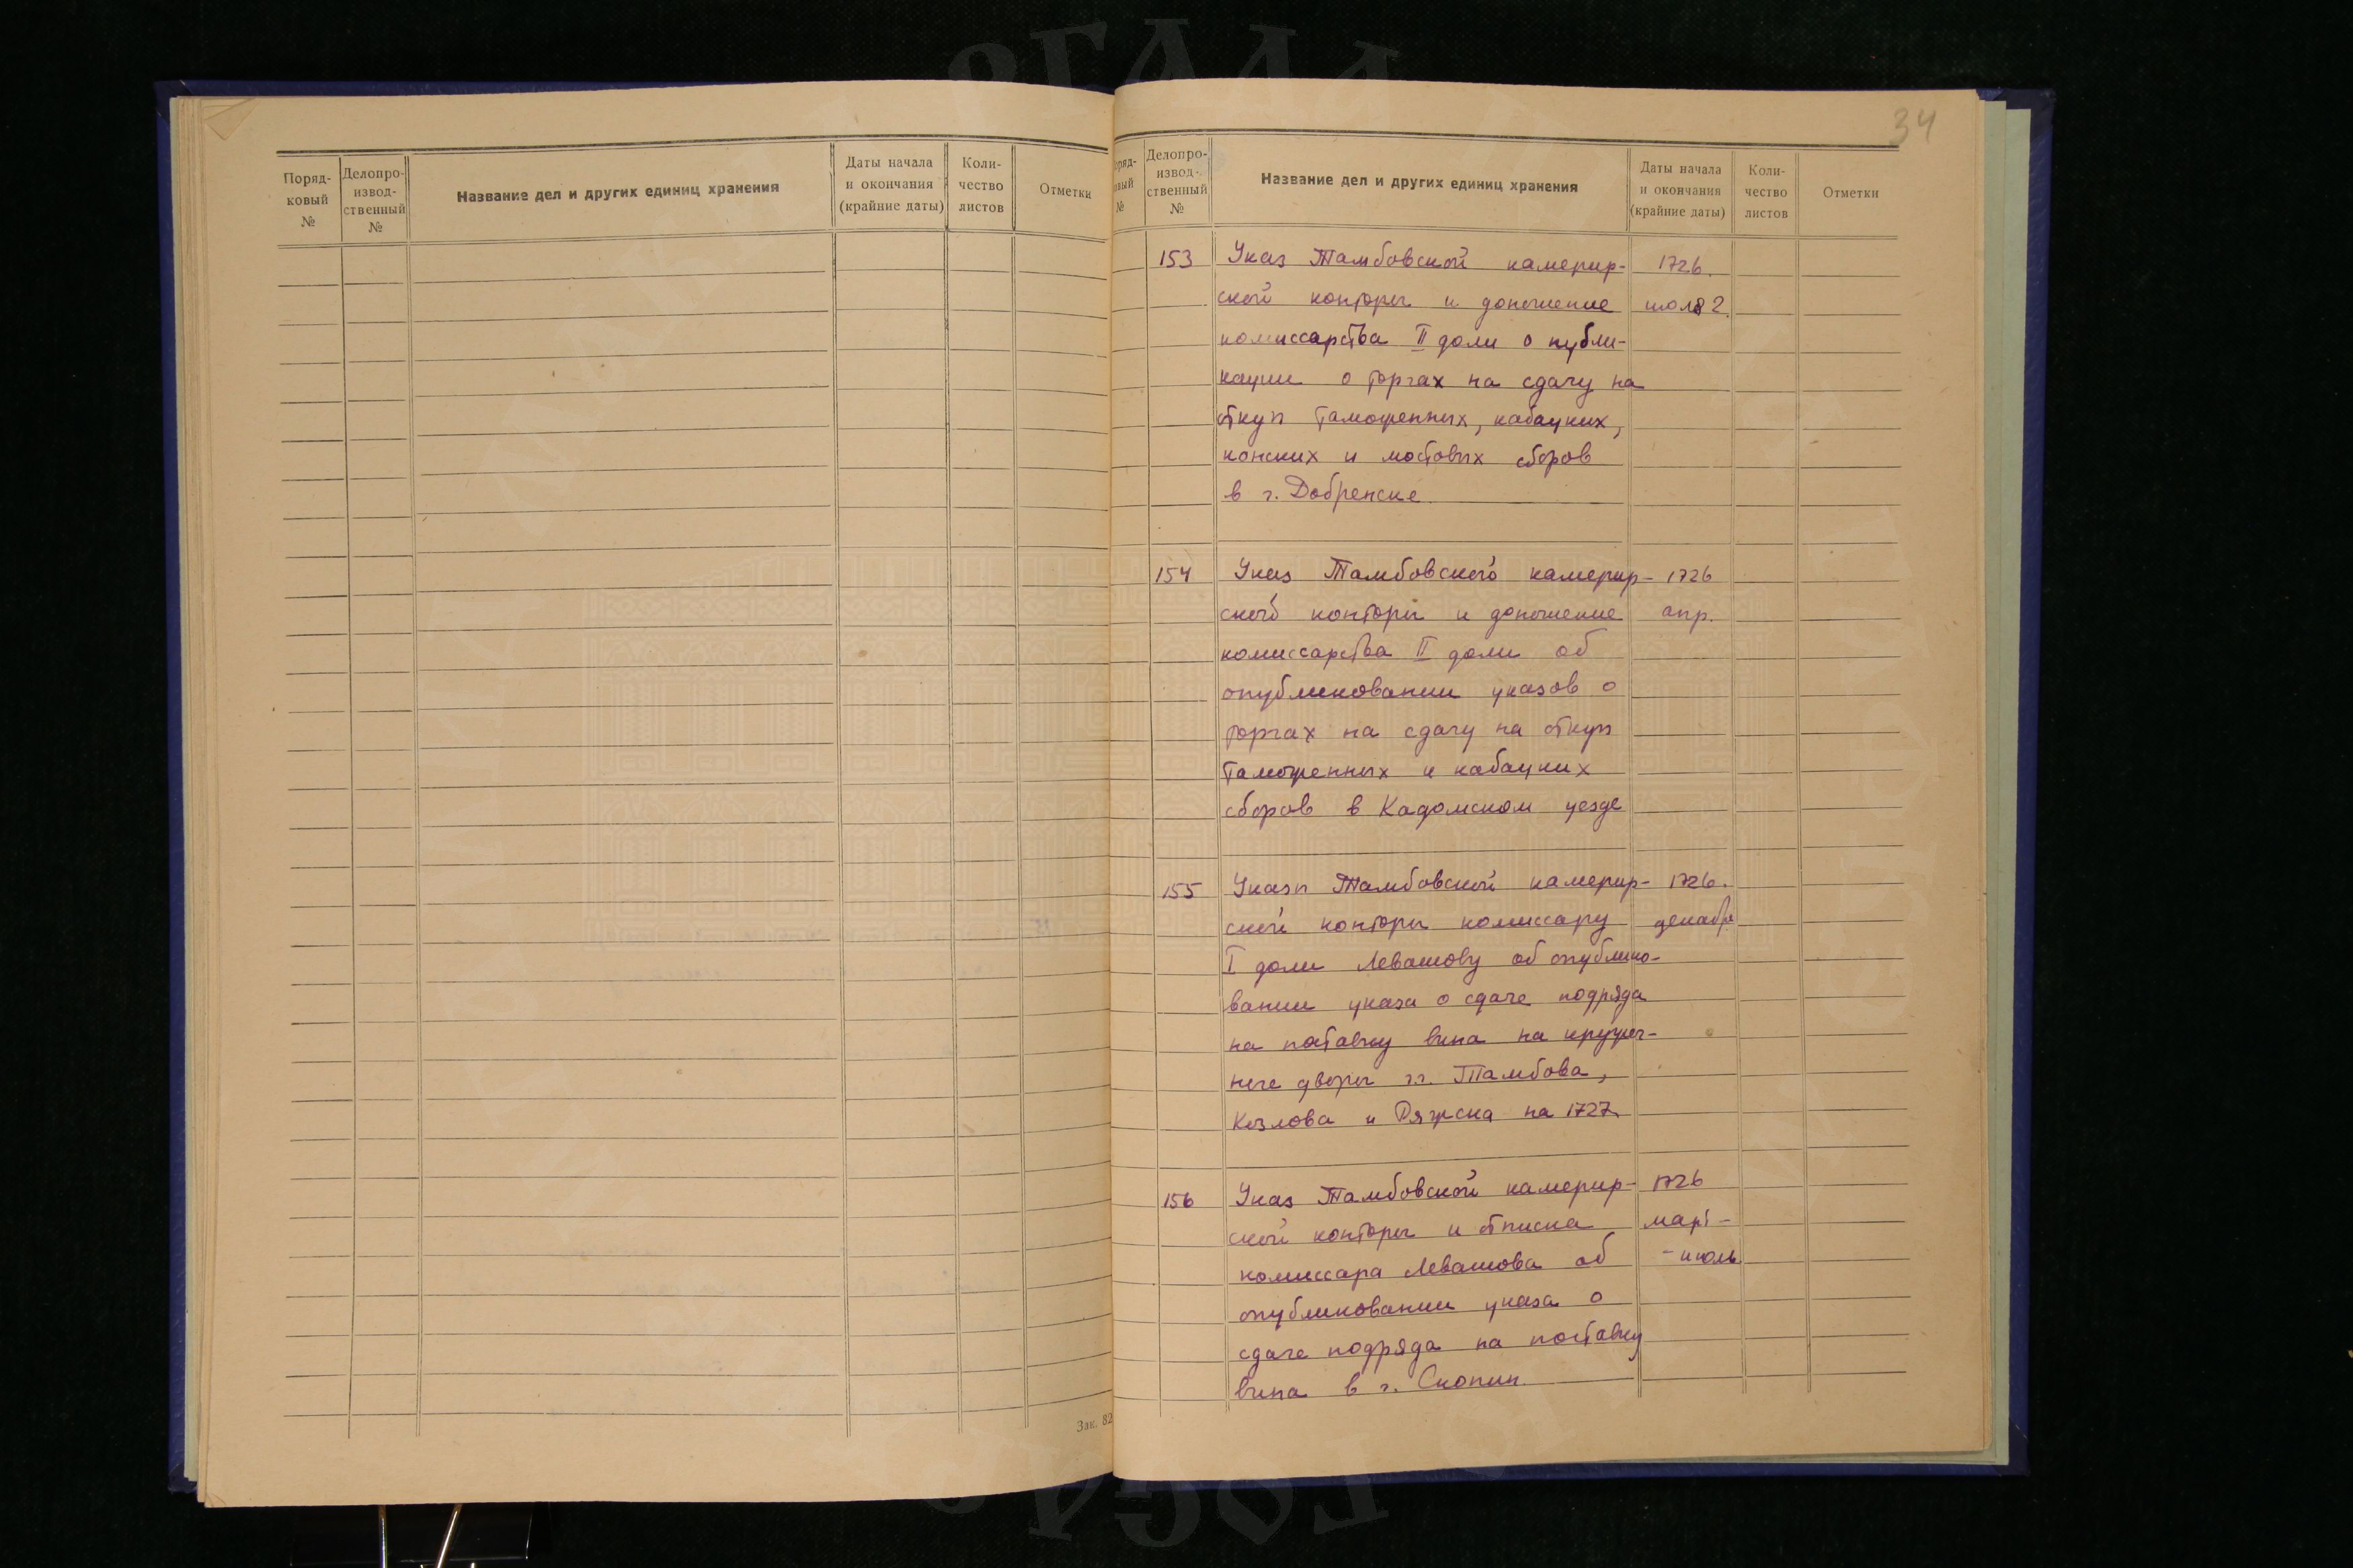 Поряд-
ковый
№
Делопро-
извод-
ственный
№
Название дел и других единиц хранения
Даты начала
и окончания
(крайние даты)
Коли-
чество
листов
Отметки
Зак. 82
34
оряд-
вый
№
Делопро-
извод-
ственный
№
Название дел и других единиц хранения
Даты начала
и окончания
(крайние даты)
Коли-
чество
листов
Отметки
153 Указ Тамбовской камерир- 1726.
ской конторы и доношение июля 2.
комиссарства II доли о публи-
кации о торгах на сдачу на
откуп таможенных, кабацких,
конских и мостовых сборов
в г. Добренске.
154 Указ Тамбовского камерир- 1726
ской конторы и доношение апр.
комиссарства II доли об
опубликовании указов о
торгах на сдачу на откуп
таможенных и кабацких
сборов в Кадомском уезде
155 Указы Тамбовской камерир- 1726.
ской конторы комиссару декабрь
I доли Левашову об опублико-
вании указа о сдаче подряда
на поставку вина на кружеч-
ные дворы г.г. Тамбова,
Козлова и Ряжска на 1727.
156 Указ Тамбовской камерир- 1726
ской конторы и отписка март -
комиссара Левашова об - июль
опубликовании указа о
сдаче подряда на поставку
вина в г. Скопин.